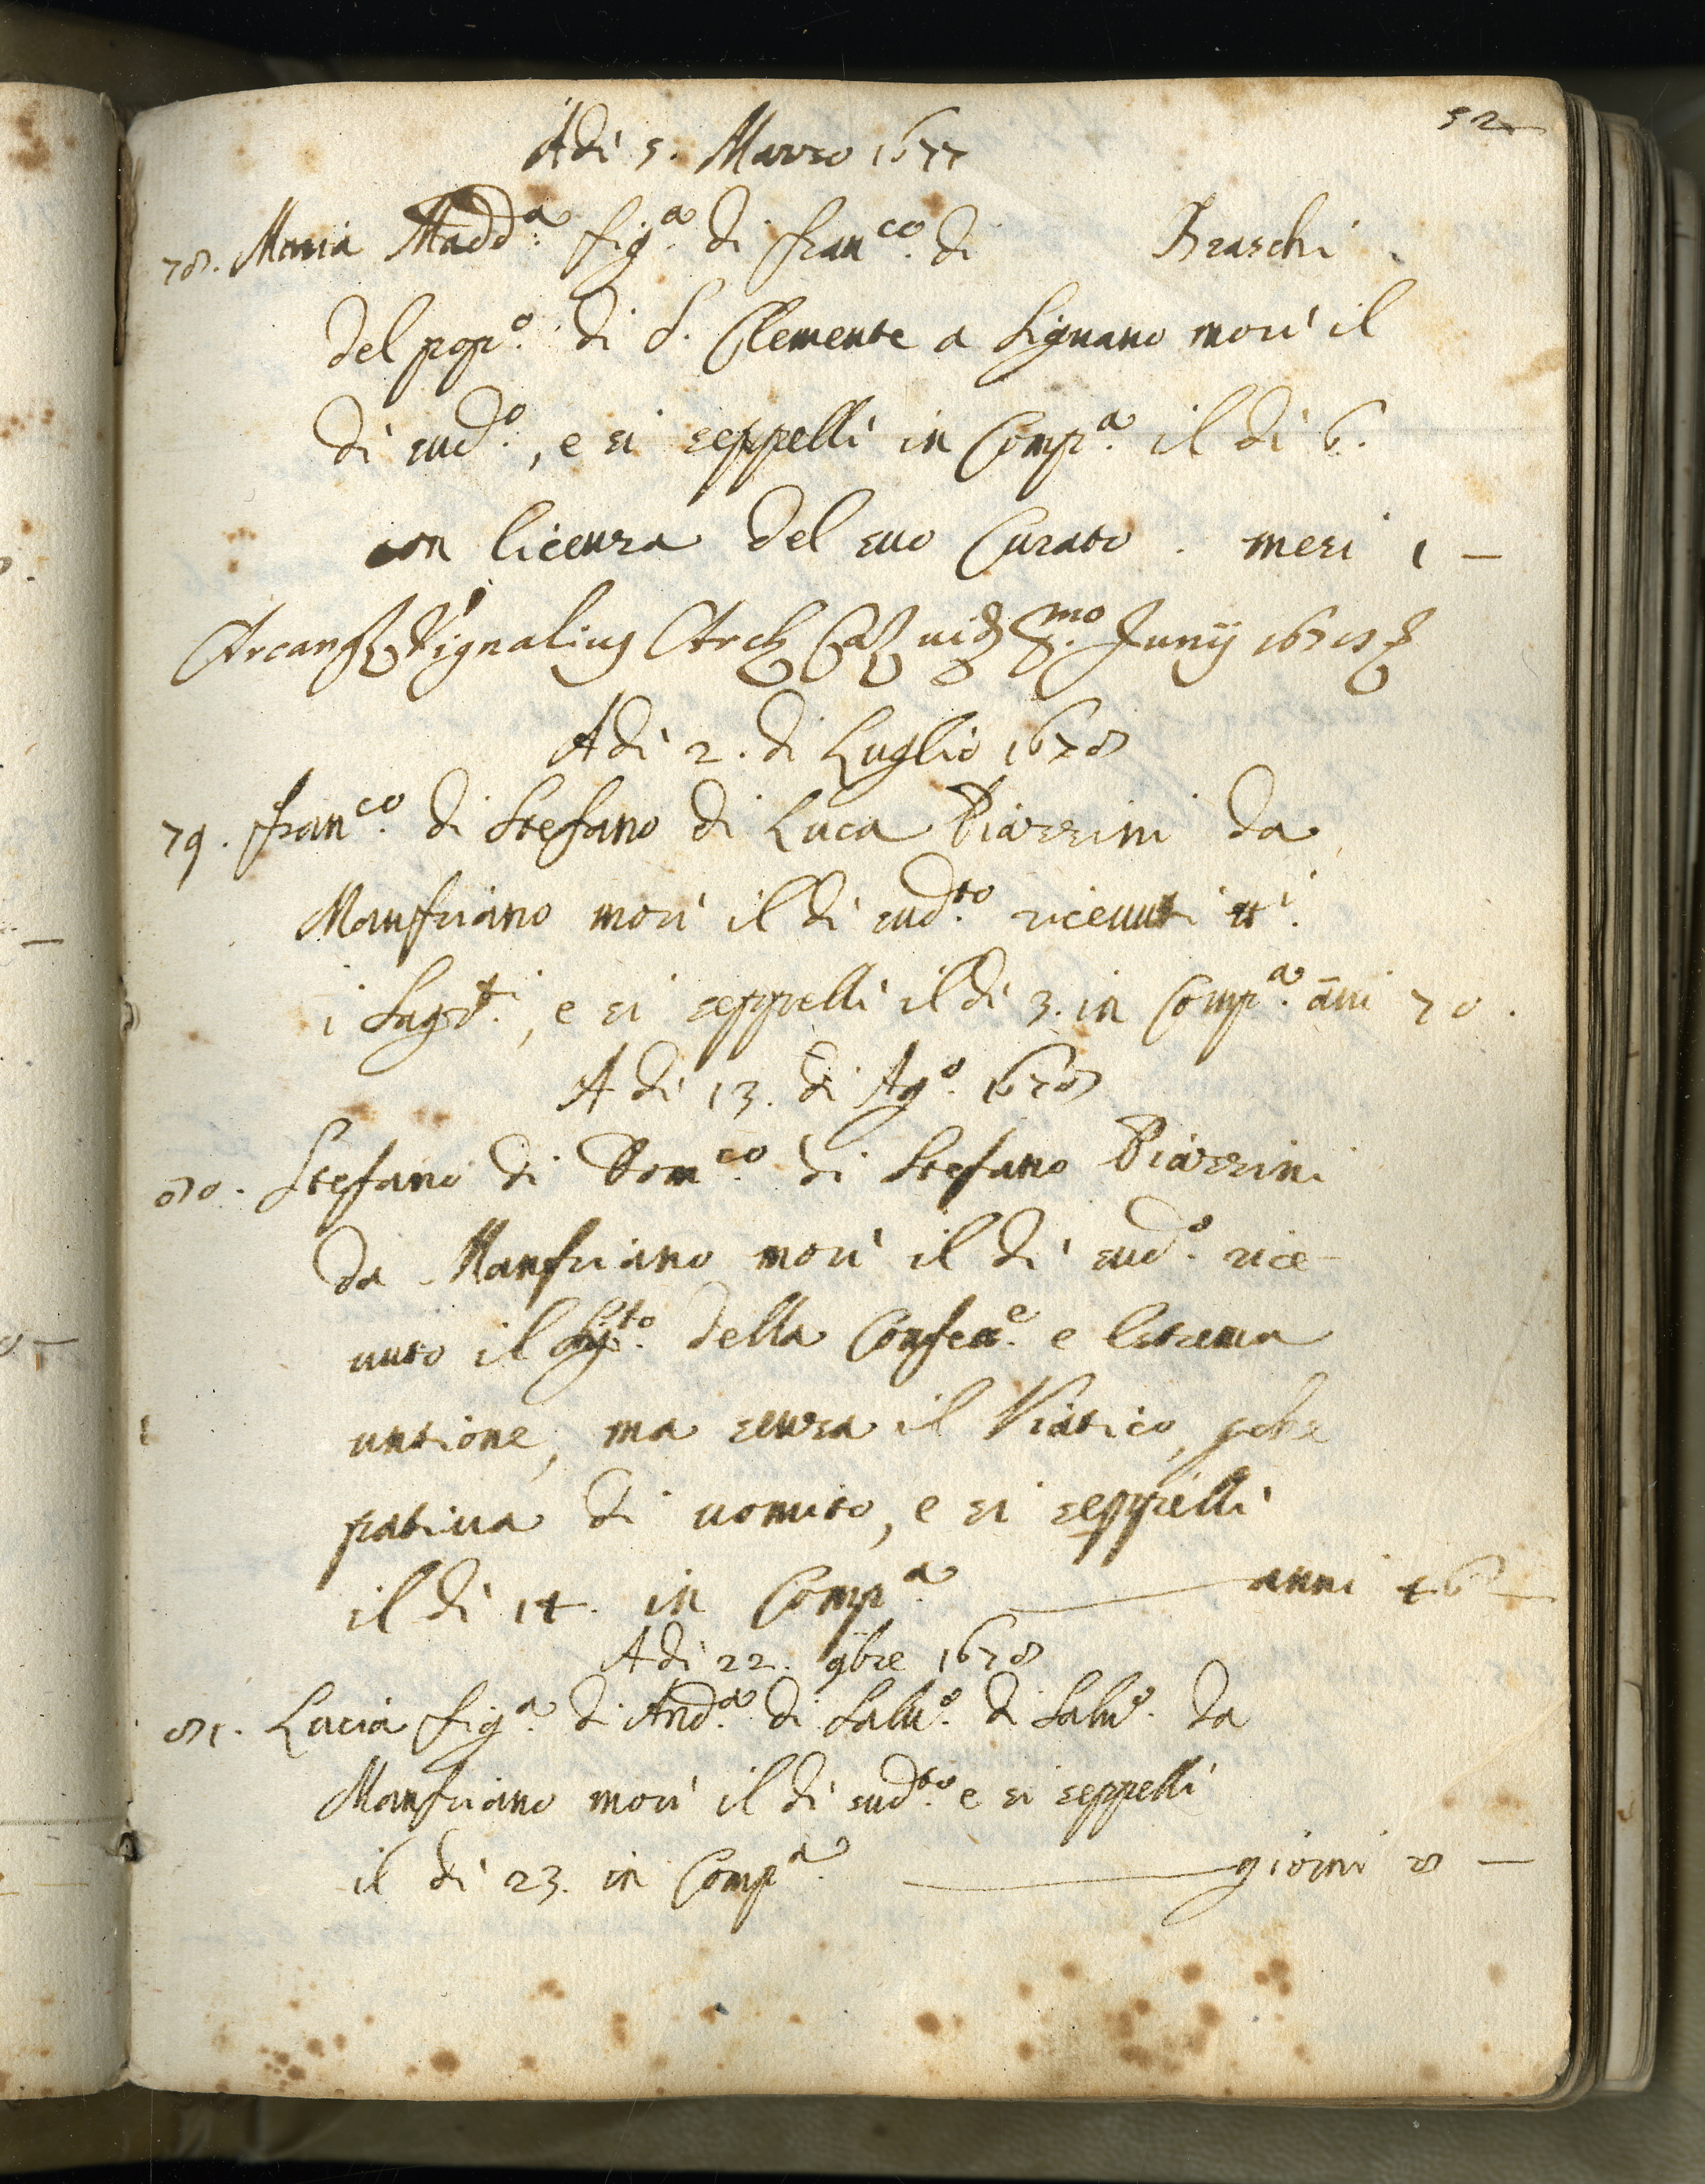 52
Adi 5. Marzo 1677
78. Maria Madd.a fig.a di Fran.co di Braschi
del pop.o di S. Clemente a Signano morì il
dì sud.o, e si seppellì in Comp.a il dì 6.
con licenza del suo Curato. mesi 1 —
Vignalius Junij
Adi 2. di Luglio 1678
79. Fran.co di Stefano di Luca Piazzini da
Manfriano morì il dì sud.to ricevuti tt.i
i Sagr.ti, e si seppellì il dì 3. in Comp.a āni 70.
A di 13. di Ag.o 1678
80. Stefano di Dom.co di Stefano Piazzini
da Manfriano morì il dì sud.o rice-
vuto il Sag.to della Confess.e e Estrema
untione, ma senza il Viatico, pche
pativa di vomito, e si seppellì
il dì 14. in Comp.a anni 46
Adi 22. 9bre 1678
81. Lucia fig.a di And.a di Salv.e di Salv.e da
Manfriano morì il dì sud.to e si seppellì
il dì 23. in Comp.a giorni 8 —